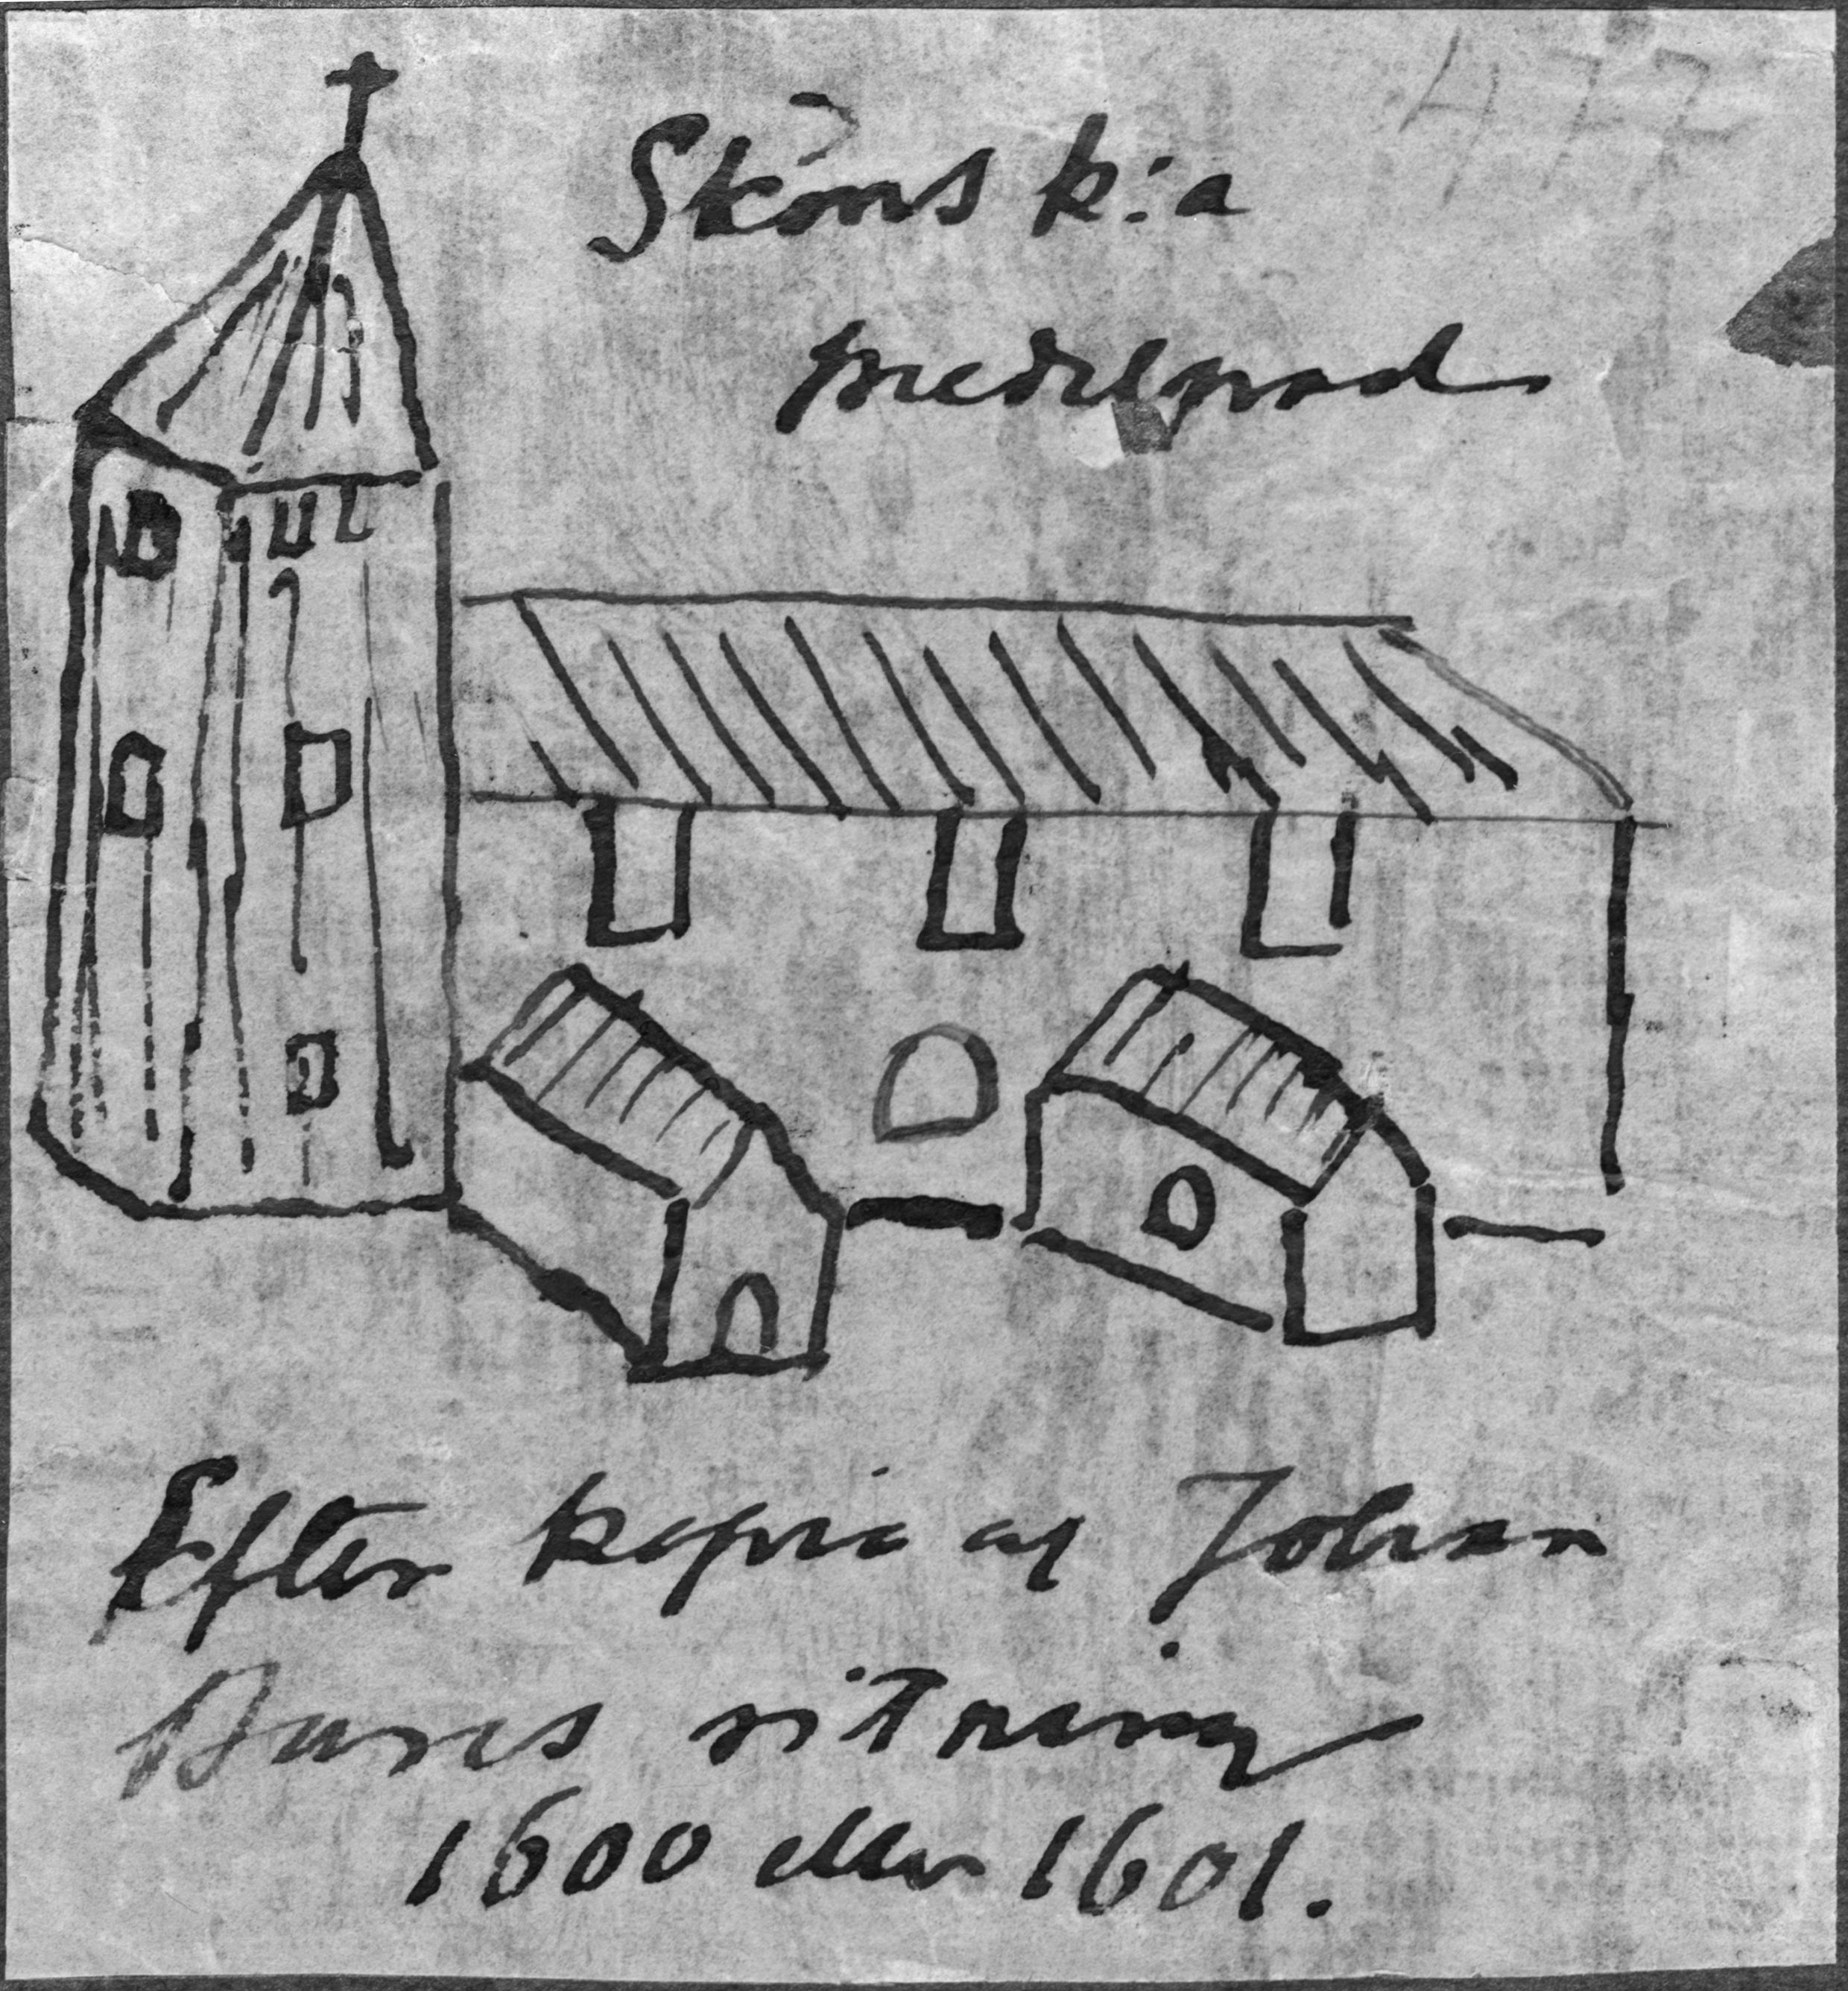 Sköns k:a
Medelpad
477
Efter kopia af Johan
Bures ritning
1600 eller 1601.